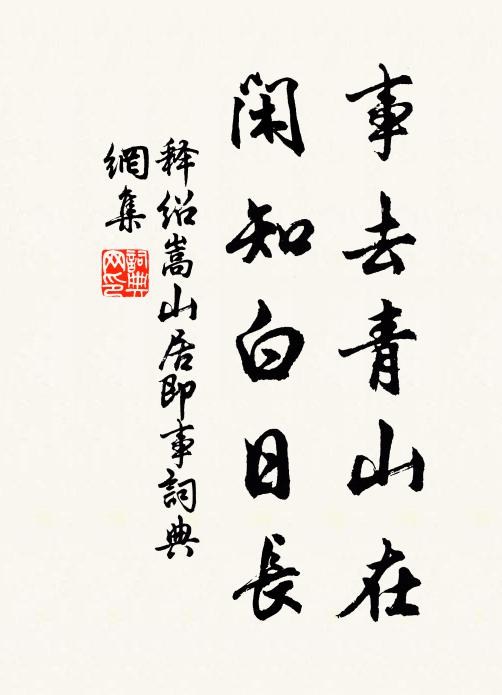 事去青山在
閑知白日長
释绍嵩山居即事詞典
網集
詞典
网印